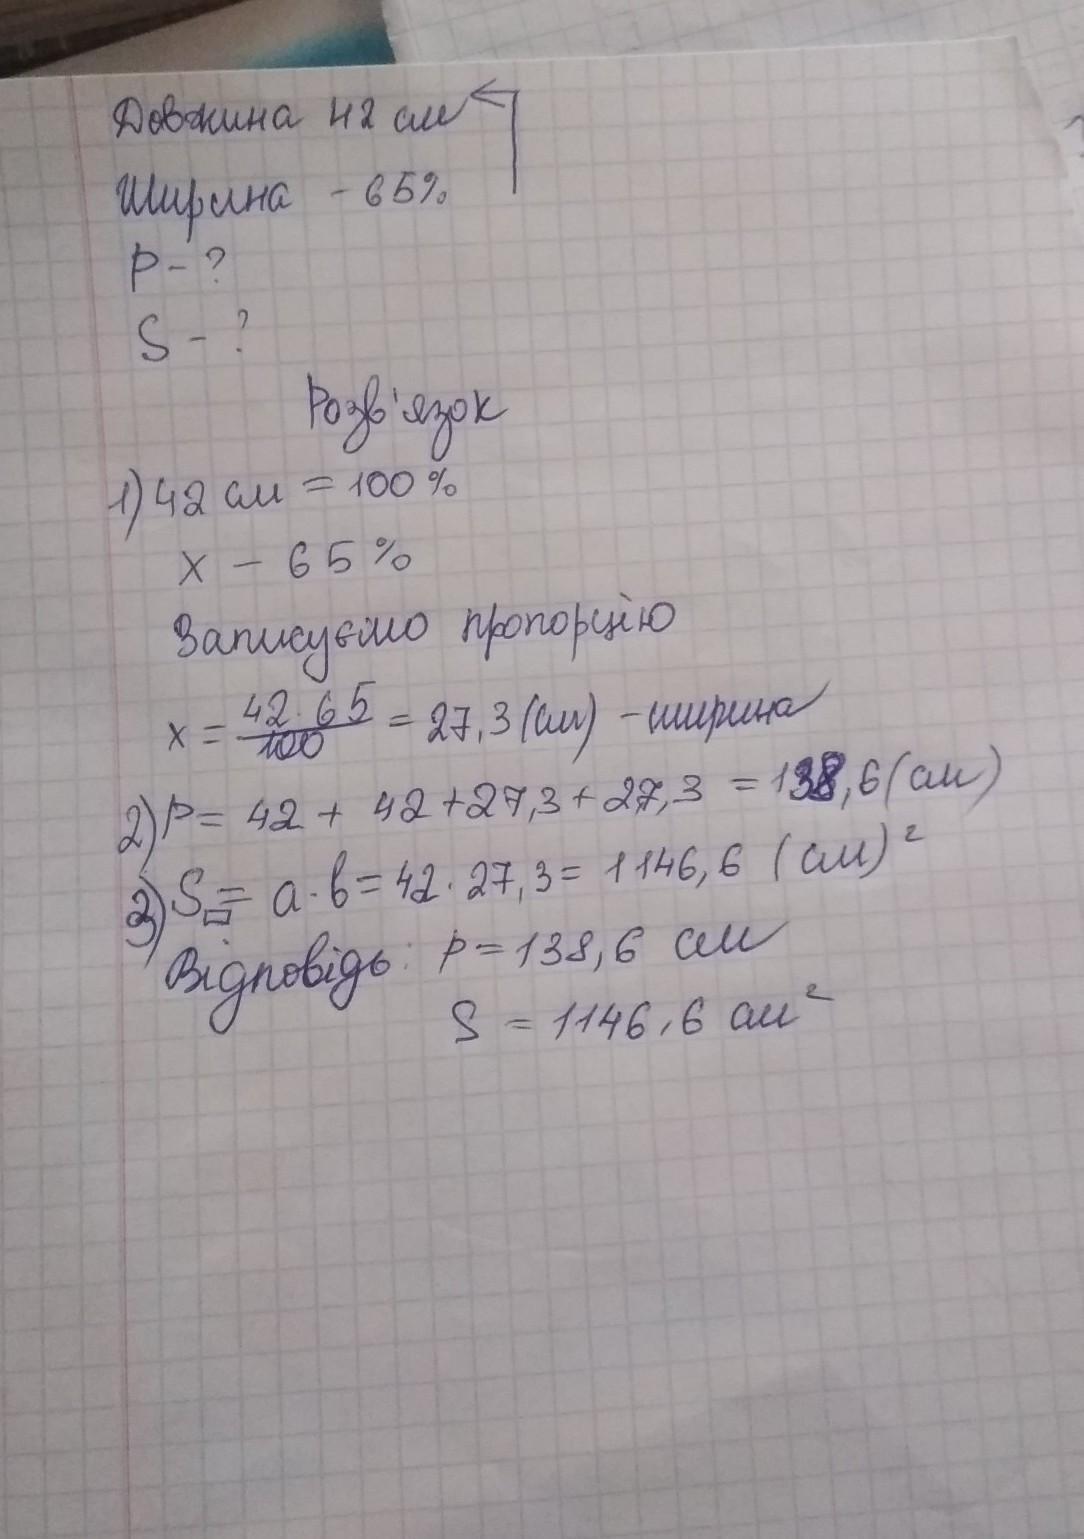 Довжина 42 см
Ширина - 65%
P - ?
S - ?
Розв'язок
1) 42 см = 100%
x - 65%
Записуємо пропорцію
x = 42·65/100 = 27,3 (см) - ширина
2) P = 42 + 42 + 27,3 + 27,3 = 138,6 (см)
3) S▭ = a·b = 42·27,3 = 1146,6 (см)²
Відповідь: P = 138,6 см
S = 1146,6 см²